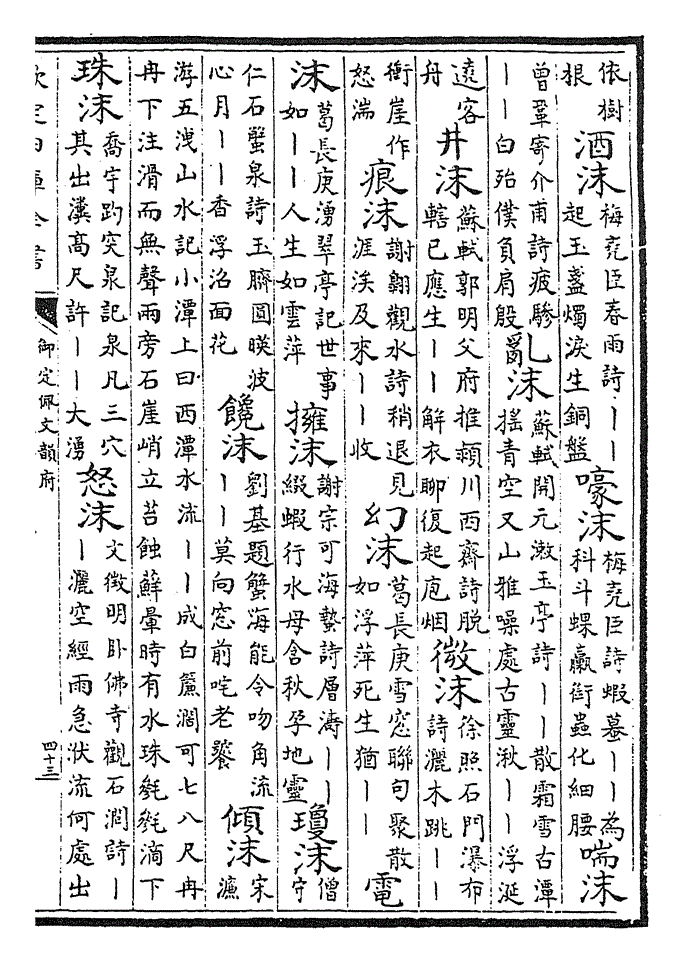 依樹根酒沫梅堯臣春雨詩丨丨起玉盞燭淚生銅盤嚎沫梅堯臣詩蝦蟇丨丨為科斗蜾蠃銜蟲化細腰喘沫
曾鞏寄介甫詩疲驂丨丨白殆僕負肩殷亂沫蘇軾開元漱玉亭詩丨丨散霜雪古潭揺青空又山雅噪處古靈湫丨丨浮涎
遠客舟井沫蘇軾郭明父府推潁川西齋詩脱轄已應生丨丨解衣聊復起庖烟微沫徐照石門瀑布詩灑木跳丨丨
銜崖作怒湍痕沫謝翱觀水詩稍退見涯涘及來丨丨收幻沫葛長庚雪窓聯句聚散如浮萍死生猶丨丨電
沫葛長庚湧翠亭記世事如丨丨人生如雲萍擁沫謝宗可海蟄詩層濤丨丨綴蝦行水母含秋孕地靈瓊沫僧守
仁石蟹泉詩玉臍圓暎波心月丨丨香浮沿面花饞沫劉基題蟹海能令吻角流丨丨莫向窓前咤老饕傾沫宋濂
游五洩山水記小潭上曰西潭水流丨丨成白簾濶可七八尺冉冉下注滑而無聲兩旁石崖峭立苔蝕蘚暈時有水珠毿毿滴下
珠沫喬宇趵突泉記泉凡三穴其出瀵髙尺許丨丨大湧怒沫文徵明卧佛寺觀石澗詩丨丨灑空經雨急洑流何處出
欽定四庫全書
御定佩文韻府
四十三